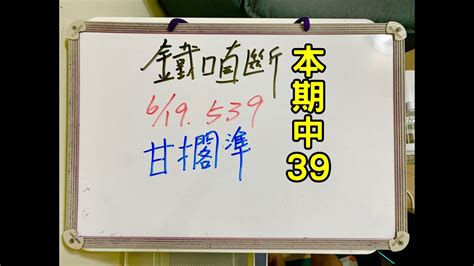 鐵口直斷
6/19. 539
甘擱準
本期中39